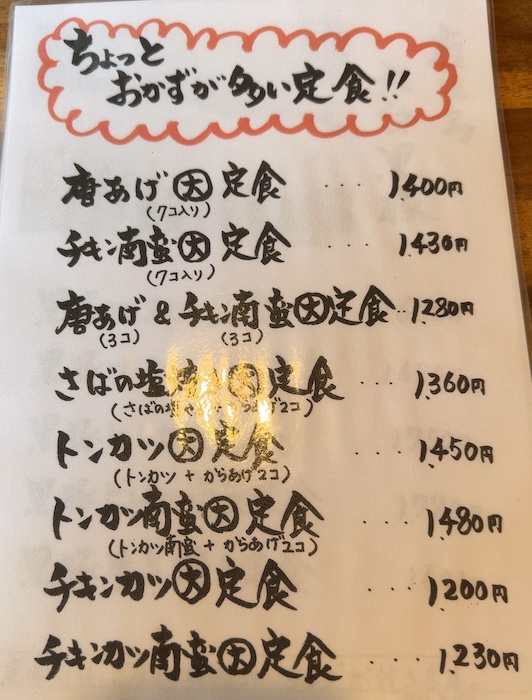 ちょっと
おかずが多い定食!!
唐あげ大定食 .... 1,400円
(7コ入り)
チキン南蛮大定食 .... 1,430円
(7コ入り)
唐あげ & チキン南蛮大定食.. 1,280円
(3コ) (3コ)
さばの塩焼き大定食 .... 1,360円
(さばの塩 2コ)
トンカツ大定食 .... 1,450円
(トンカツ + からあげ2コ)
トンカツ南蛮大定食 .... 1,480円
(トンカツ南蛮 + からあげ2コ)
チキンカツ大定食 .... 1,200円
チキンカツ南蛮大定食 .... 1,230円